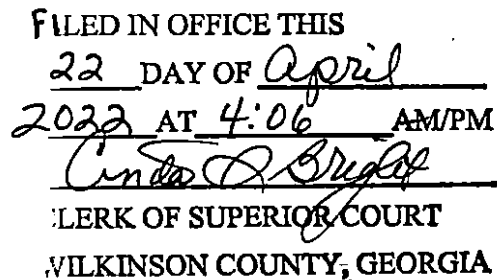 FILED IN OFFICE THIS
22 DAY OF April
2022 AT 4:06 AM/PM
Cinda S Bright
CLERK OF SUPERIOR COURT
WILKINSON COUNTY, GEORGIA